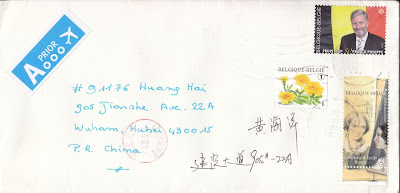 A PRIOR
BELGIQUE-BELGIË
PRINS
PRINCE PHILIPPE
BELGIQUE-BELGIË
1
BELGIQUE BELGIË
# 91176 Huang Hai
905 Jianshe Ave. 22A
Wuham, Hubei 430015
P.R China
黄
建设大道905#-22A